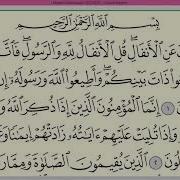 بِسْمِ ٱللَّهِ ٱلرَّحْمَٰنِ ٱلرَّحِيمِ
عَنِ ٱلْأَنفَالِ ۖ قُلِ ٱلْأَنفَالُ لِلَّهِ وَٱلرَّسُولِ ۖ فَٱتَّ
حُوا۟ ذَاتَ بَيْنِكُمْ ۖ وَأَطِيعُوا۟ ٱللَّهَ وَرَسُولَهُۥٓ
١ إِنَّمَا ٱلْمُؤْمِنُونَ ٱلَّذِينَ إِذَا ذُكِرَ ٱللَّهُ وَ
وَإِذَا تُلِيَتْ عَلَيْهِمْ ءَايَٰتُهُۥ زَادَتْهُمْ إِيمَٰنًا وَعَ
٢ ٱلَّذِينَ يُقِيمُونَ ٱلصَّلَوٰةَ وَمِمَّا رَ